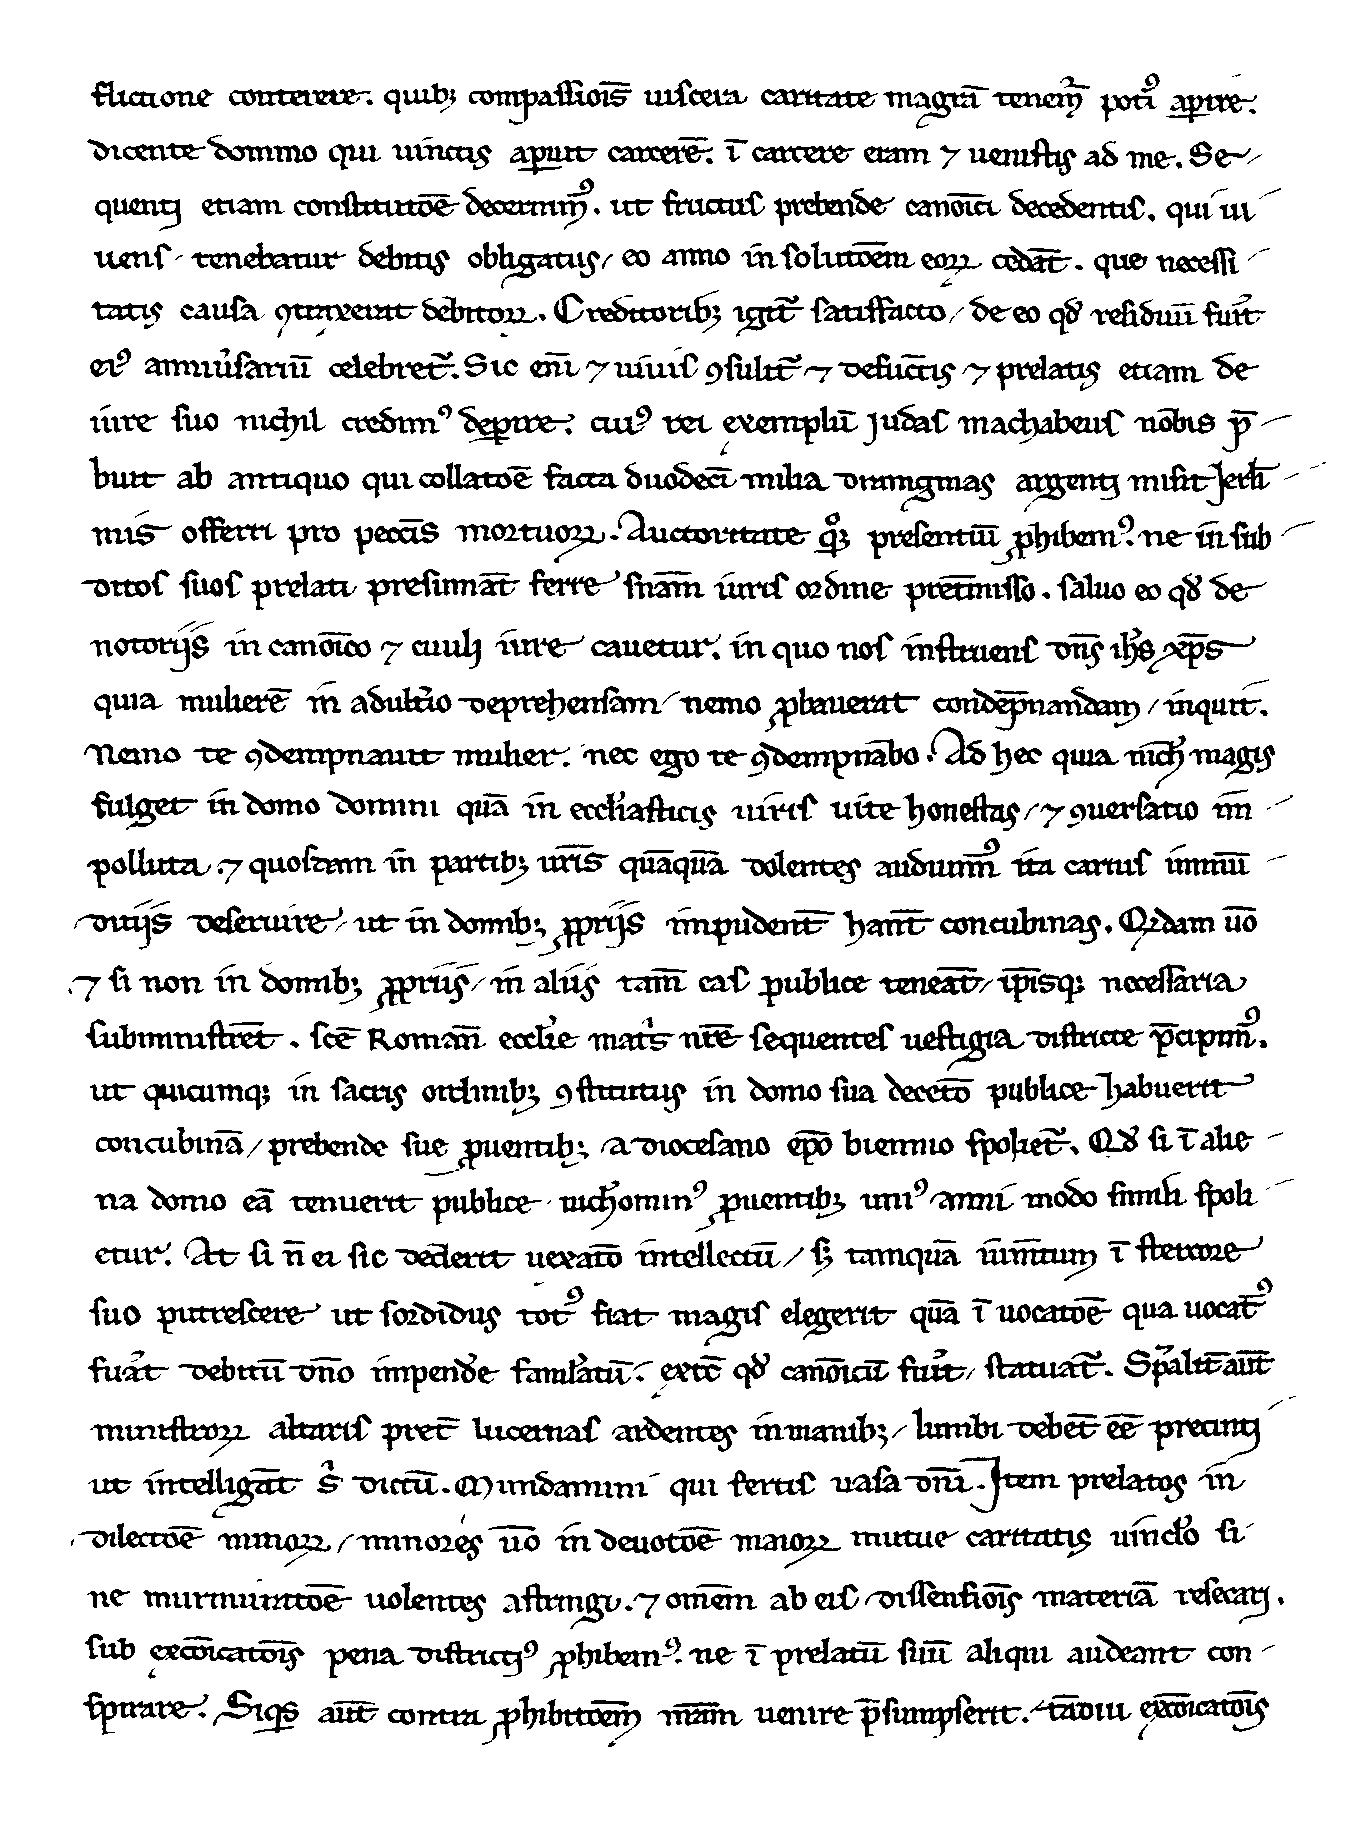 flictione conterere. quib; compassiois̄ uiscera caritate magrā tenem̃ potiꝰ aꝑire.
dicente domino qui uinctis aꝑuit carcerē. ī carcere eram ⁊ uenistis ad me. Se
quenti etiam constitutōē decernimꝰ. ut fructus prebende canōici decedentis. qui ui
uens tenebatur debitis obligatus/ eo anno in solutōem eoꝝ cedāt. que necessi
tatis causa ꝯtraxerunt debitoꝝ. Creditorib; igit̃ satisfacto/ de eo qđ residuū fuit̾
eiꝰ anniu̾sariū celebret̃. Sic enī ⁊ uiuis ꝯsulit̃ ⁊ defuc̄tis ⁊ prelatis etiam de
iure suo nichil credimꝰ deꝑire. cuiꝰ rei exemplū Judas machabeus nōbis p̄
buit ab antiquo qui collatōē facta duodecī milia dragmas argenti misit Jerl̄i
mis offerri pro peccīs mortuoꝝ. Auctoritate q̊; presentiū ꝓhibemꝰ. ne in sub
ditos suos prelati presumāt ferre sñam iuris ordine pretm̄isso. saluo eo qđ de
notorijs in canōico ⁊ ciuili iure cauetur. in quo nos instruens dn̄s ih̄s xp̄s
quia mulierē in adult̾io deprehensam/ nemo ꝓbauerat condēpnandam/ inquit.
Nemo te ꝯdempnauit mulier. nec ego te ꝯdempnābo. Ad hec quia nich̾ magis
fulget in domo domini quā in eccl̾iasticis uiris uite honestas/ ⁊ ꝯuersatio im
polluta. ⁊ quosdam in partib; ur̄is quāquā dolentes audiuimꝰ ita carius immū
ditijs deseruire/ ut in domib; ꝓprijs impudent̄ hant̄ concubinas. Qidam ūo
⁊ si non in domib; ꝓpriis/ in aliis tam̄ eas publice teneāt/ ip̄isq; necessaria
subministrēt. scē Romañ eccl̾ie mat̾s nr̄e sequentes uestigia districte p̄cipimꝰ.
ut quicumq; in sacris ordinib; ꝯstitutus in domo sua decetō publice habuerit
concubinā/ prebende sue ꝓuentib; a diocesano ep̄o biennio spoliet̃. Qđ si ī alie
na domo eā tenuerit publice nich̾ominꝰ ꝓuentib; uniꝰ anni modo simili spoli
etur. At si n̄ ei sic dederit uexatō intellectū/ sꝫ tamquā iumtum ī stercore
suo putrescere ut sordidus totꝰ fiat magis elegerit quā ī uocatōē qua uocatꝰ
fuāt debitū dn̄o impend̾e famlatū. extc̄ qđ canōicū fuit̾/ statuat̃. Sp̄alit̄ aūt
ministroꝝ altaris pret̄ lucernas ardentes in manib;/ lumbi debēt eē precinti
ut intelligāt s̾ dictū. Mundamini qui fertis uasa dn̄i. Item prelatos in
dilectōē minoꝝ/ minores ūo in deuotōē maioꝝ mutue caritatis uinclo si
ne murmuratōē uolentes astringi. ⁊ om̄em ab eis dissensiōis materiā resecari.
sub excōicatōis pena districtiꝰ ꝓhibemꝰ. ne ī prelatū suū aliqui audeant con
spirare. Siqs̄ aūt contra ꝓhibitōem nr̄am uenire p̄sumpserit. tādiu excōicatōis